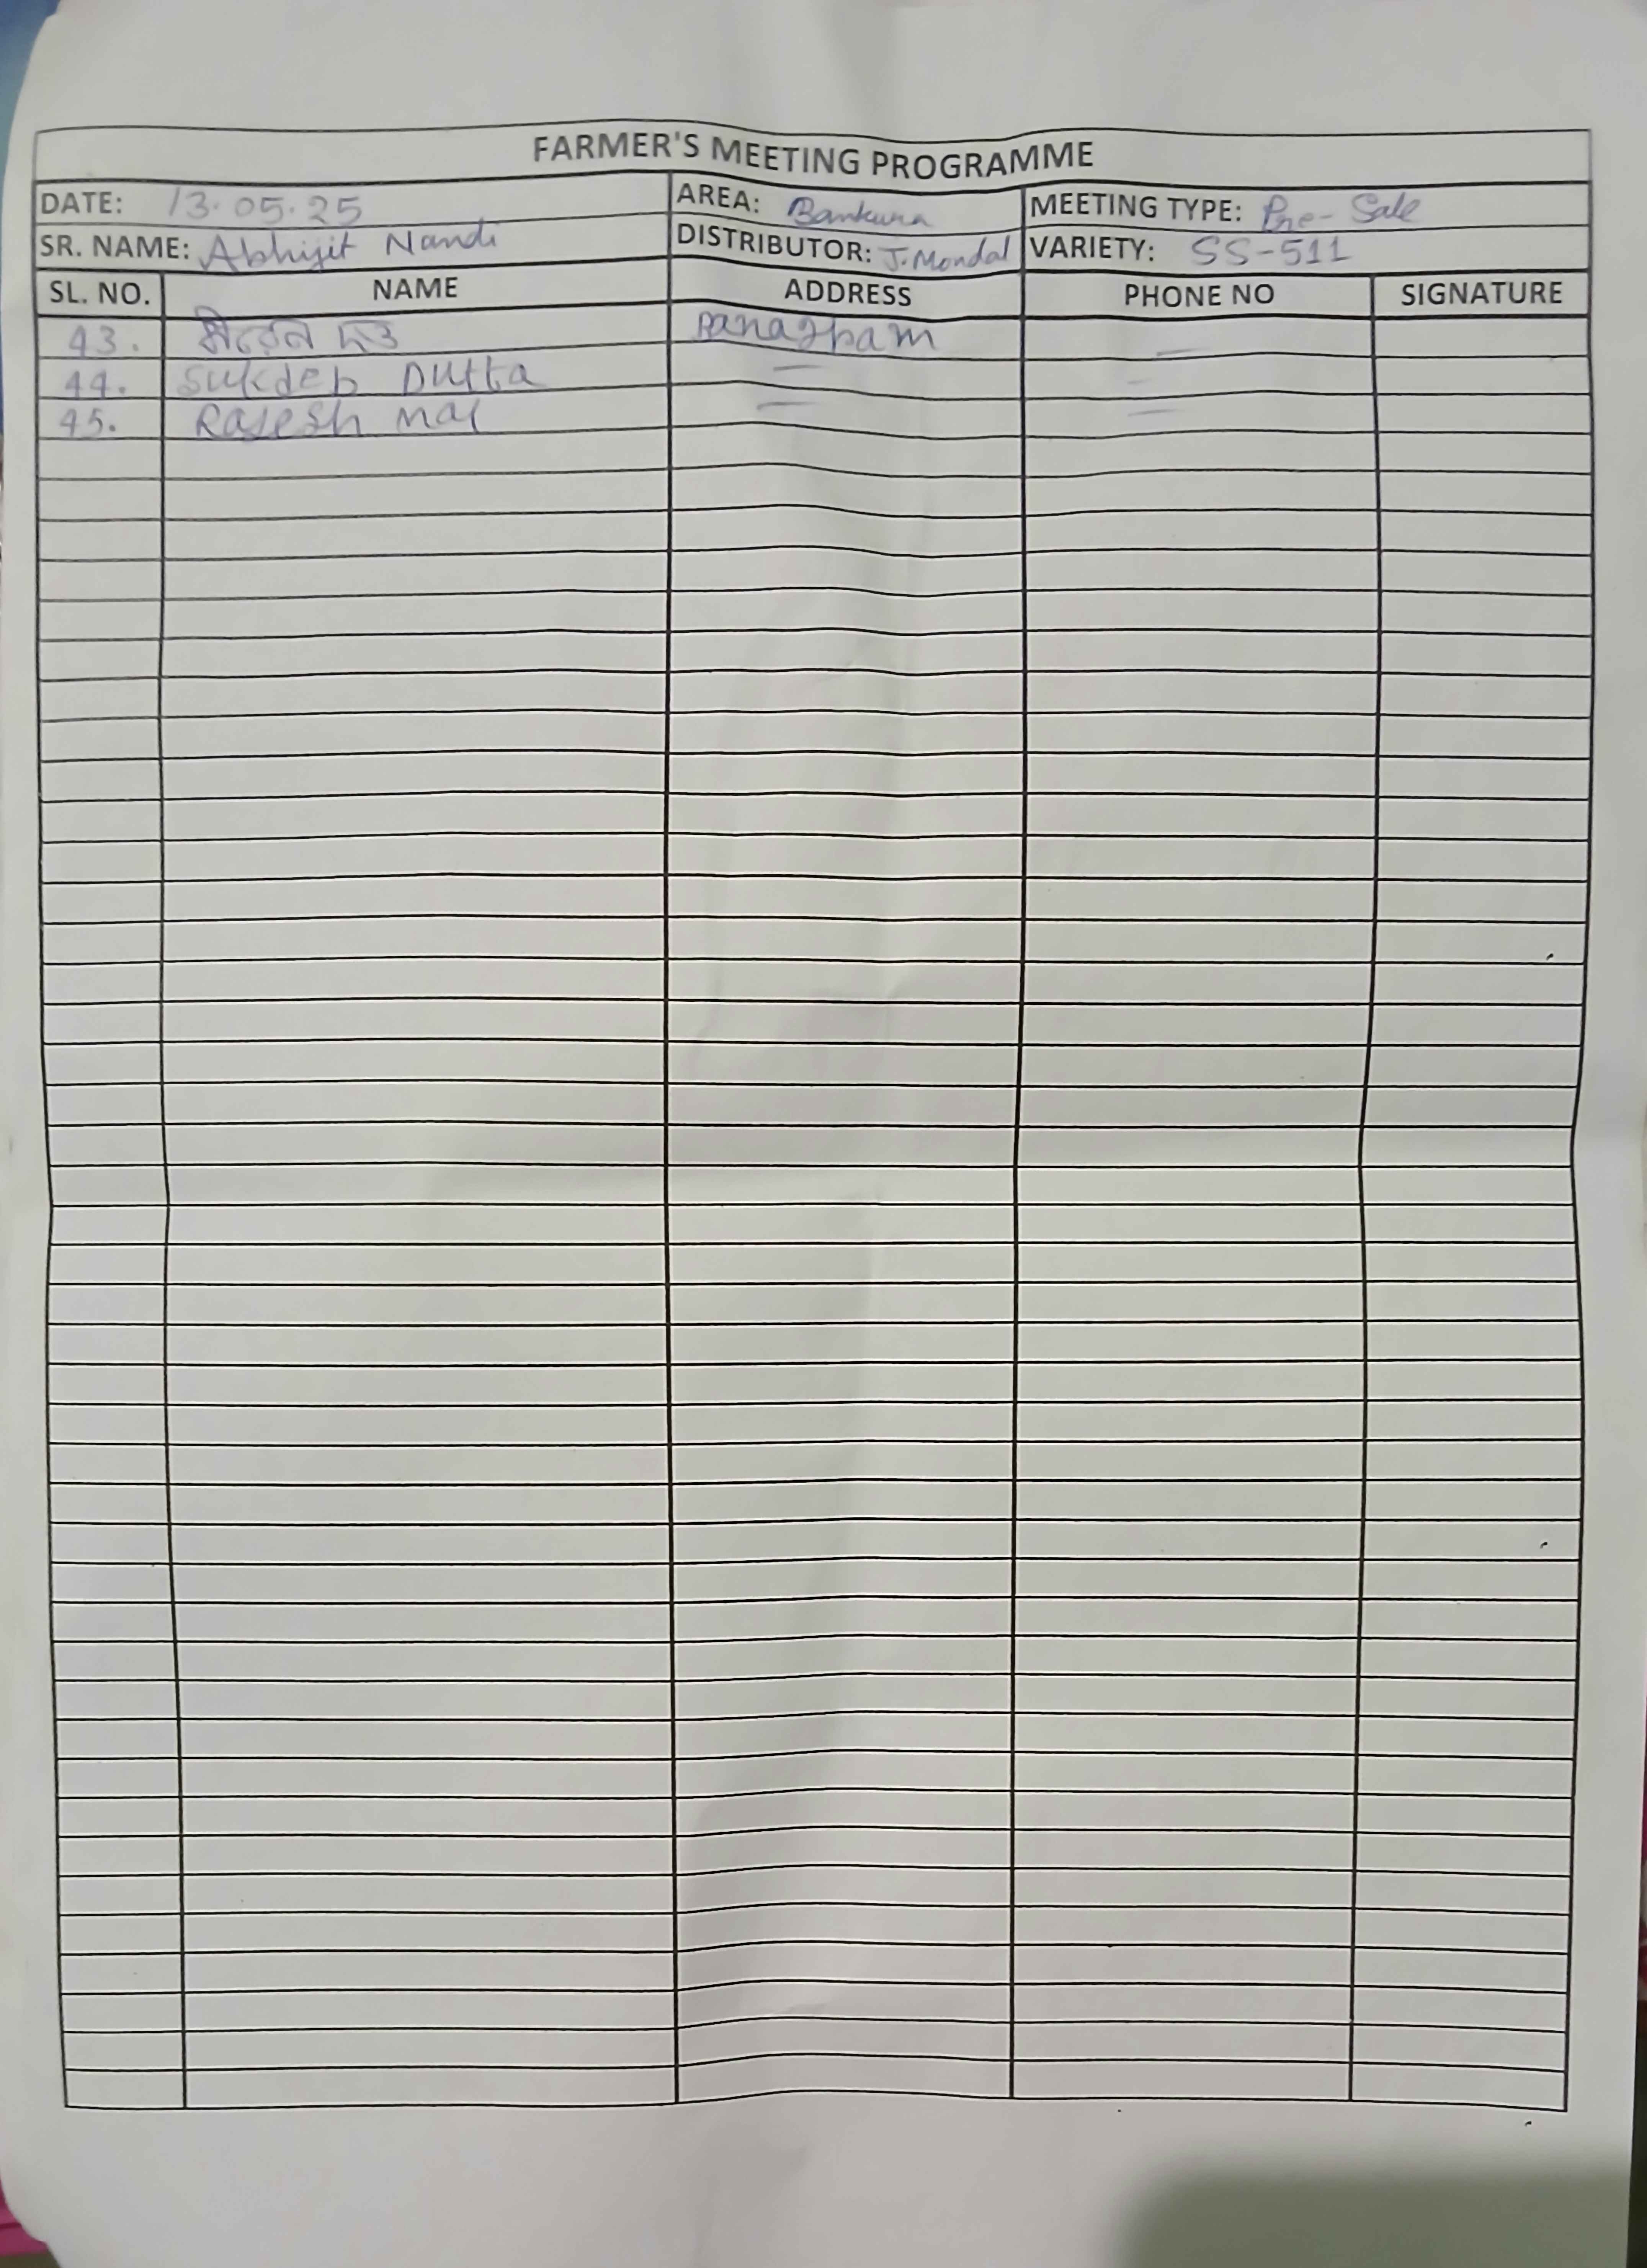 FARMER'S MEETING PROGRAMME
DATE: 13.05.25 AREA: Bankura MEETING TYPE: Pre-Sale
SR. NAME: Abhijit Nandi DISTRIBUTOR: J. Mondal VARIETY: SS-511
SL. NO. NAME ADDRESS PHONE NO SIGNATURE
43. দত্ত —
44. Sukdeb Dutta — —
45. Rajesh Mal — —